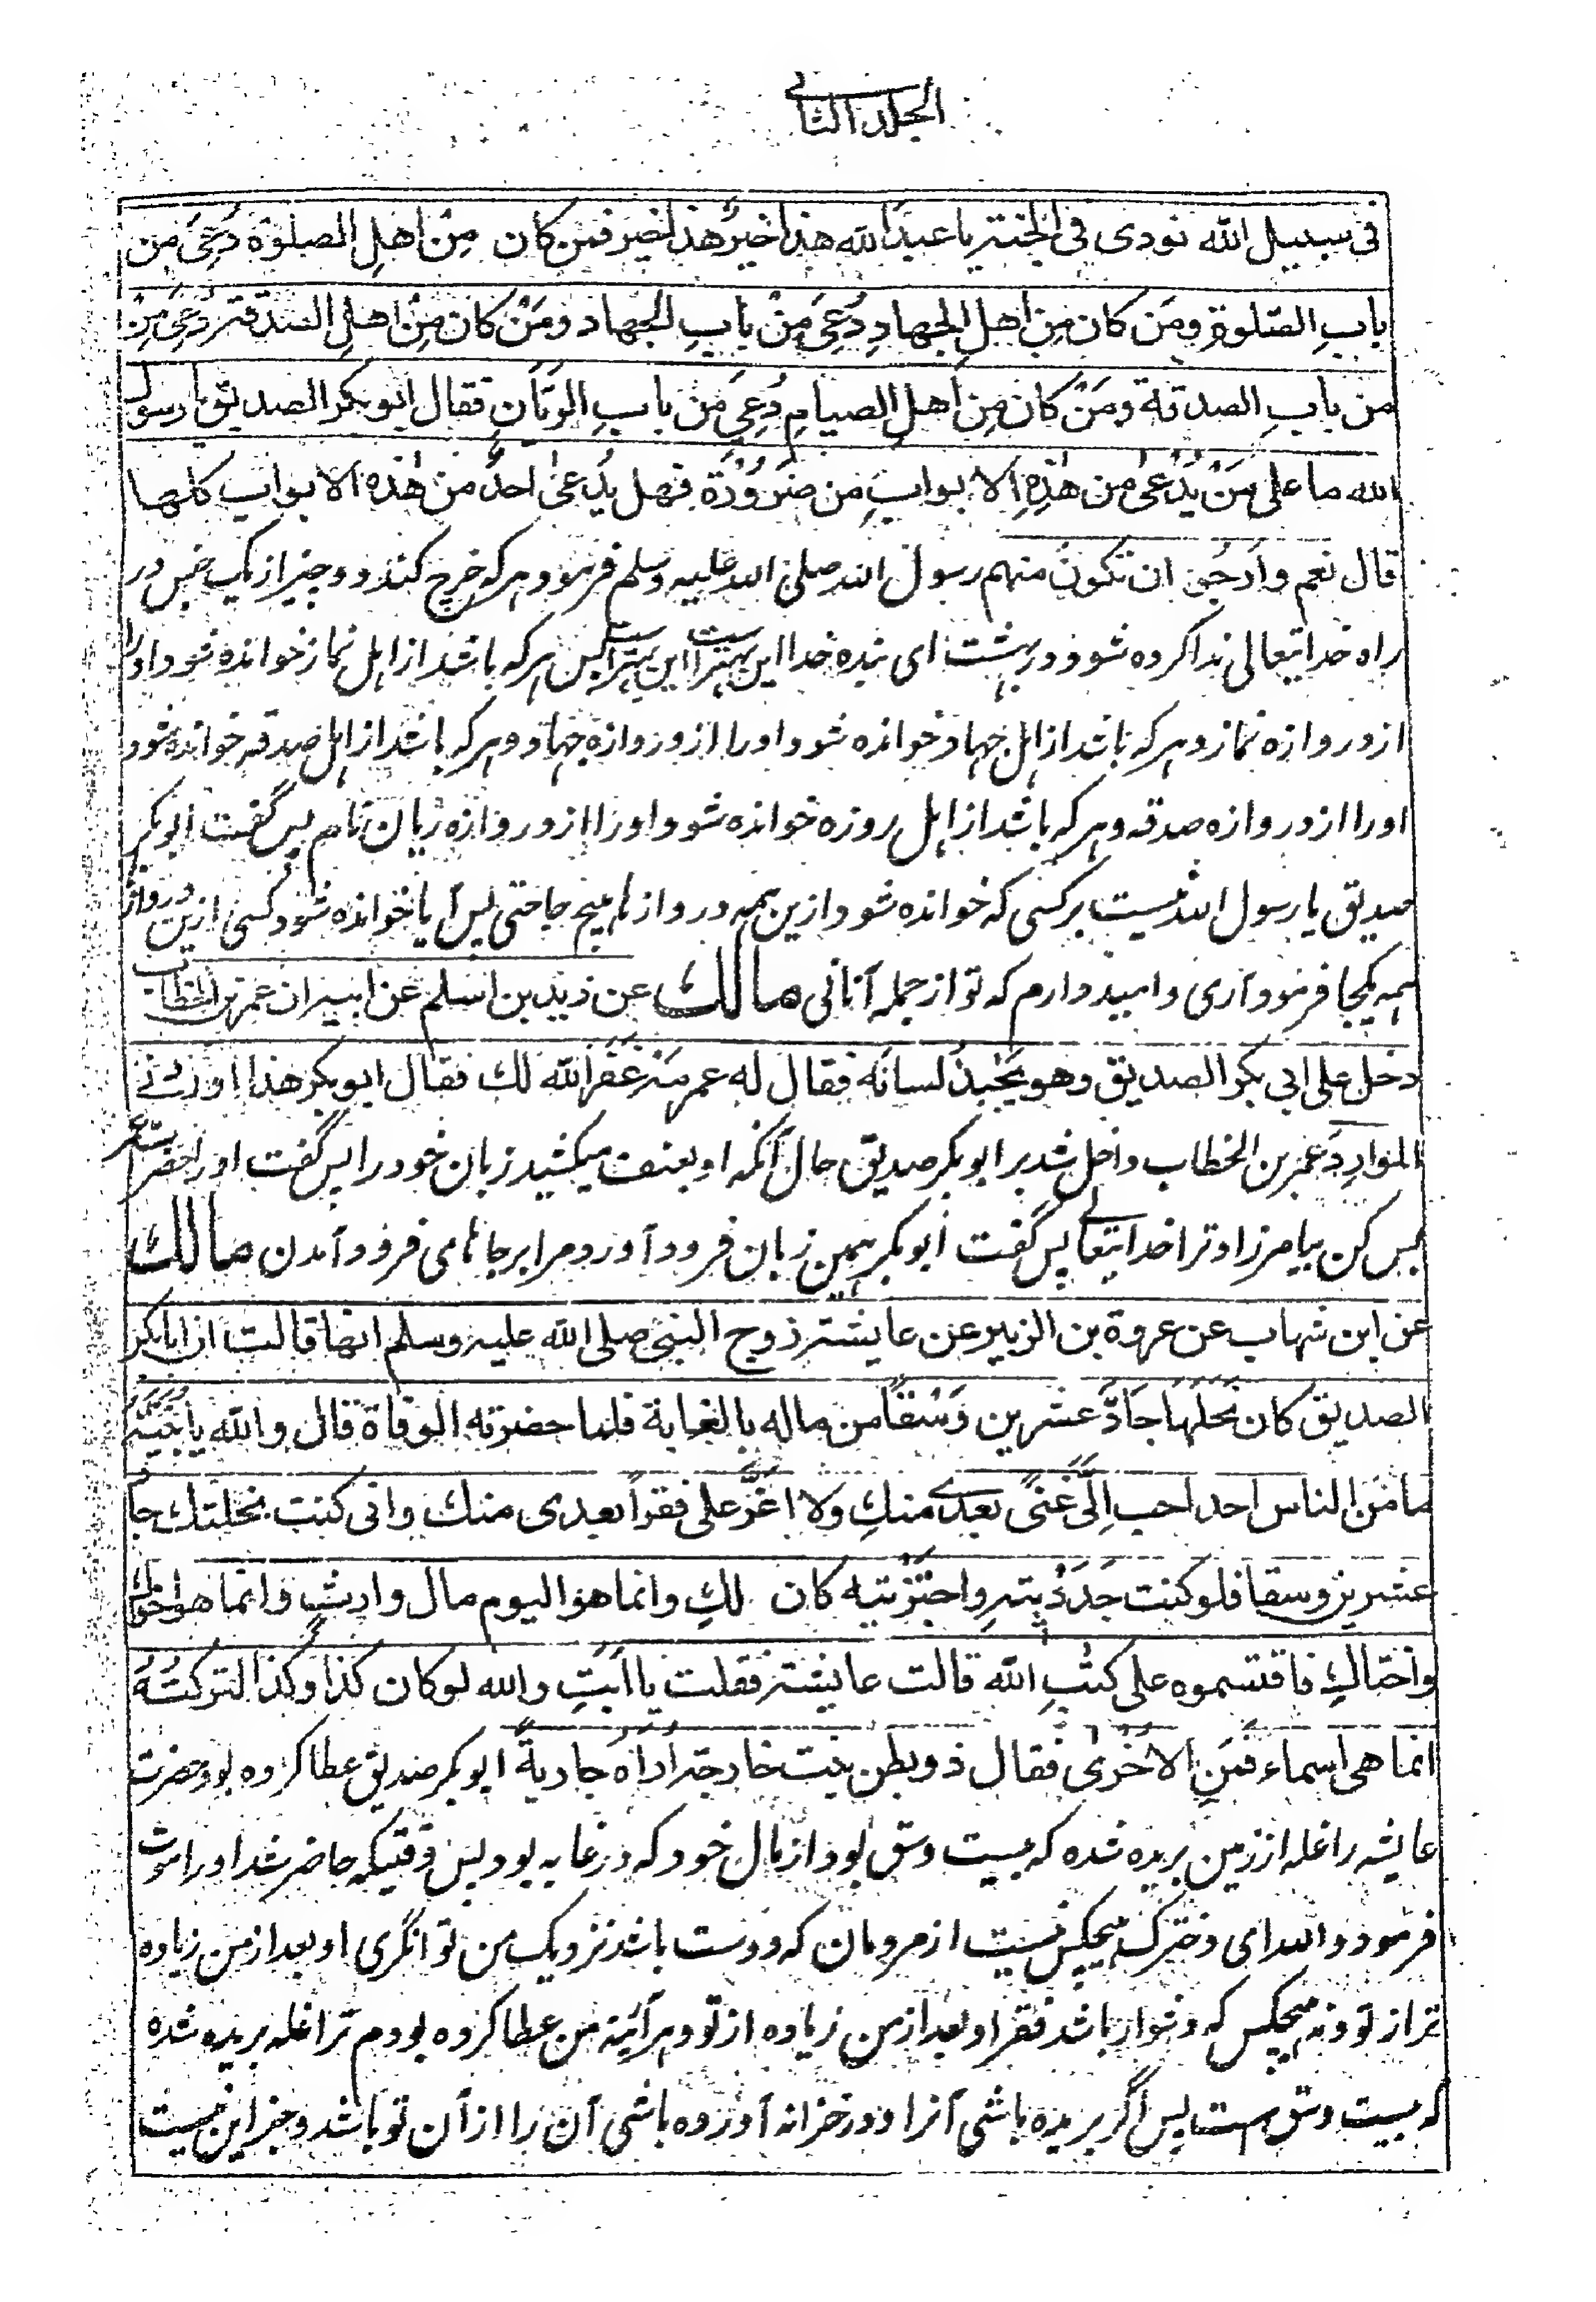 الجلد الثانی
فی سبیل الله نودی فی الجنة یا عبدَ الله هذا خیرٌ هذا خیر فمن کان مِنْ اهلِ الصلوٰة دُعِیَ من
بابِ الصلوة ومَن کان مِن اهلِ الجهادِ دُعِیَ مِنْ بابِ الجهاد ومَنْ کان مِنْ اهلِ الصدقة دُعِیَ مِنْ
من بابِ الصدقة ومَنْ کان مِن اهلِ الصیامِ دُعِیَ مَنْ بابِ الریّانِ فقال ابو بکر الصدیق یا رسول
الله ما علی مَنْ یُدْعیٰ من هٰذِهِ الابوابِ من ضَرُوْرَةٍ فهل یُدعیٰ احدٌ من هٰذه الابواب کلها
قال نعم واَرجُو ان تکونَ منهم رسول الله صلی الله علیه وسلم فرمود هر که خرچ کند دو چیز از یک جنس در
راه خدایتعالی ندا کرده شود در بهشت ای بنده خدا این بهتر است این بهتر است پس هر که باشد از اهل نماز خوانده شود او را
از دروازه نماز و هر که باشد از اهل جهاد خوانده شود او را از دروازه جهاد و هر که باشد از اهل صدقه خوانده شود
او را از دروازه صدقه و هر که باشد از اهل روزه خوانده شود او را از دروازه ریان نام پس گفت ابو بکر
صدیق یا رسول الله نیست بر کسی که خوانده شود ازین همه دروازها هیچ حاجتی پس آیا خوانده شود کسی ازین دروازها
همه یکجا فرمود آری و امیدوارم که تو از جمله آنانی مالك عن زید بن اسلم عن ابیه ان عمر بن الخطاب
دخل علی ابی بکر الصدیق وهو یَجْبِذُ لسانَه فقال له عمر مَه غَفَر الله لك فقال ابو بکر هذا اوردنی
المَوارِدَ عمر بن الخطاب داخل شد بر ابو بکر صدیق حال آنکه او بعنف میکشید زبان خود را پس گفت او را حضرت عمر
بس کن بیامرزاد ترا خدایتعالے پس گفت ابو بکر همین زبان فرود آورد مرا بر جاهای فرود آمدن مالك
عن ابن شهاب عن عروة بن الزبیر عن عایشة زوج النبی صلی الله علیه وسلم انها قالت ان ابا بکر
الصدیق کان نَحَلَهَا جَادَّ عشرین وَسْقًا من ماله بالغابة فلما حضرته الوفاة قال والله یا بُنَیَّةُ
ما مَن الناس احد احب اِلَیَّ غنیً بعدی منكِ ولا اعَزُّ علی فقرًا بعدی منك وانی کنت نحلتك جا
عشرین وسقا فلو کنت جَدَدْتِیْهِ واحتَزْتیه کان لكِ وانما هو الیوم مال وارثٍ وانما هو اخواك
واختاكِ فاقتسموه علی کتٰبِ الله قالت عایشة فقلت یا اَبَتِ والله لو کان کذا وکذا لترکتُهُ
انما هی اسماء فمَنِ الاُخْریٰ فقال ذو بطن بنت خارجة اُراه جاریةً ابو بکر صدیق عطا کرده بود حضرت
عایشه را غله از زمین بریده شده که بیست وسق بود از مال خود که در غابه بود پس وقتیکه حاضر شد او را موت
فرمود والله ای دخترک هیچکس نیست از مردمان که دوست باشد نزدیک من توانگری او بعد از من زیاده
تر از تو و نه هیچکس که دشوار باشد فقر او بعد از من زیاده از تو و هر آئینه من عطا کرده بودم ترا غله بریده شده
که بیست وسق ست پس اگر بریده باشی آنرا و در خزانه آورده باشی آن را از آن تو باشد و جز این نیست